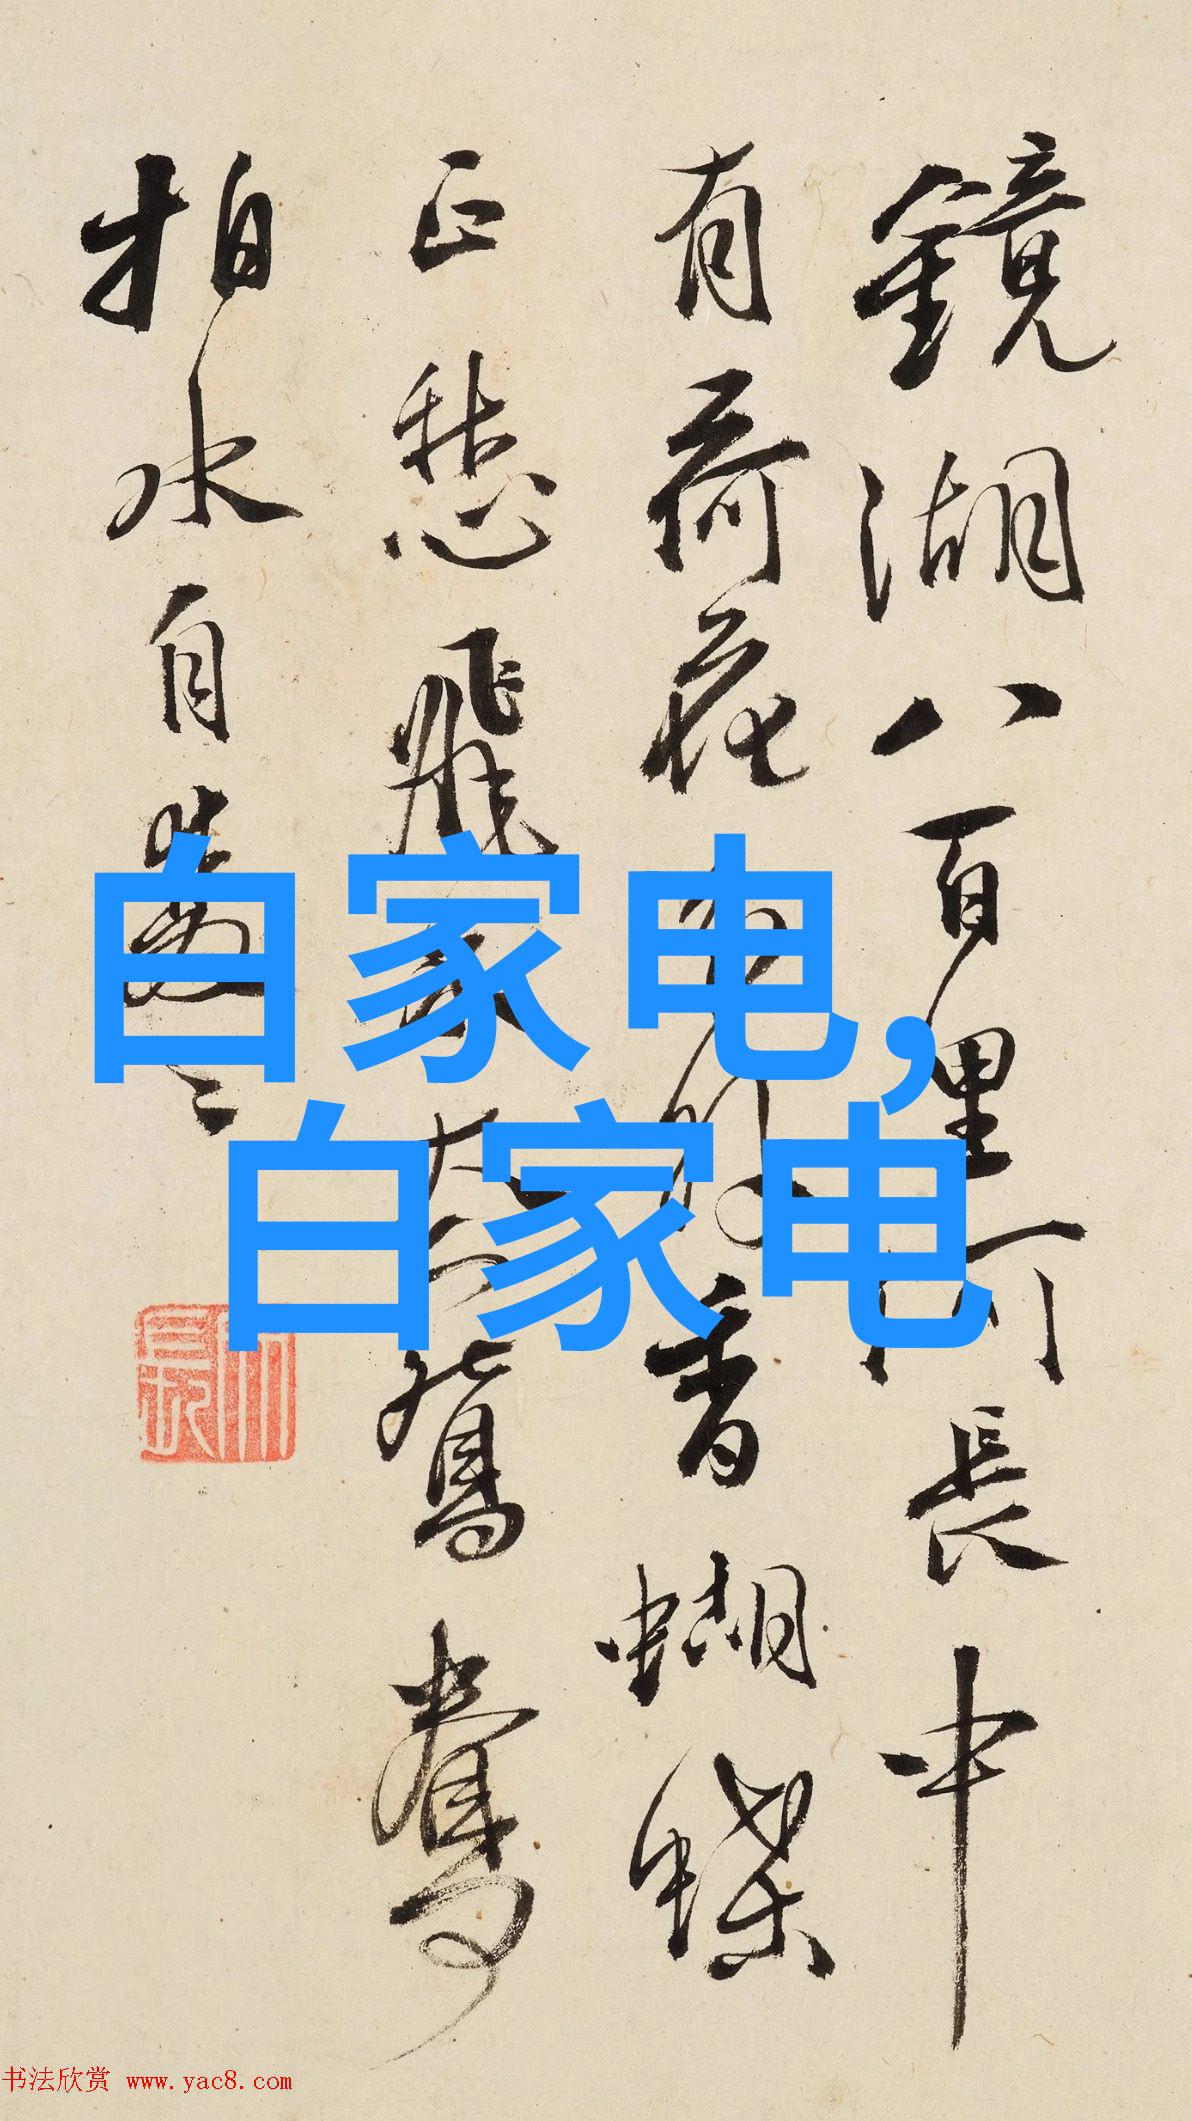 鏡湖八百里何長中
有荷花分外香蝴蝶
正愁飛不鴛鴦
拍水自
白家电,
白家电
书法欣赏 www.yac8.com